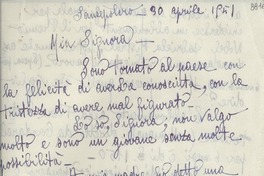 Sansepolcro - 30 aprile 1951
Mia Signora -
Sono tornato al paese con
la felicità di averLa conosciuta, con la
tristezza di avere mal figurato -
Lo so, Signora; non valgo
molto e sono un giovane senza molte
possibilità -
madre ho detto una